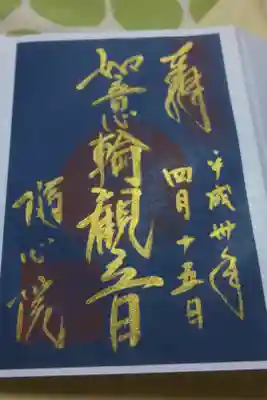 奉拝
平成卅年
四月十五日
如意輪観世音
随心院